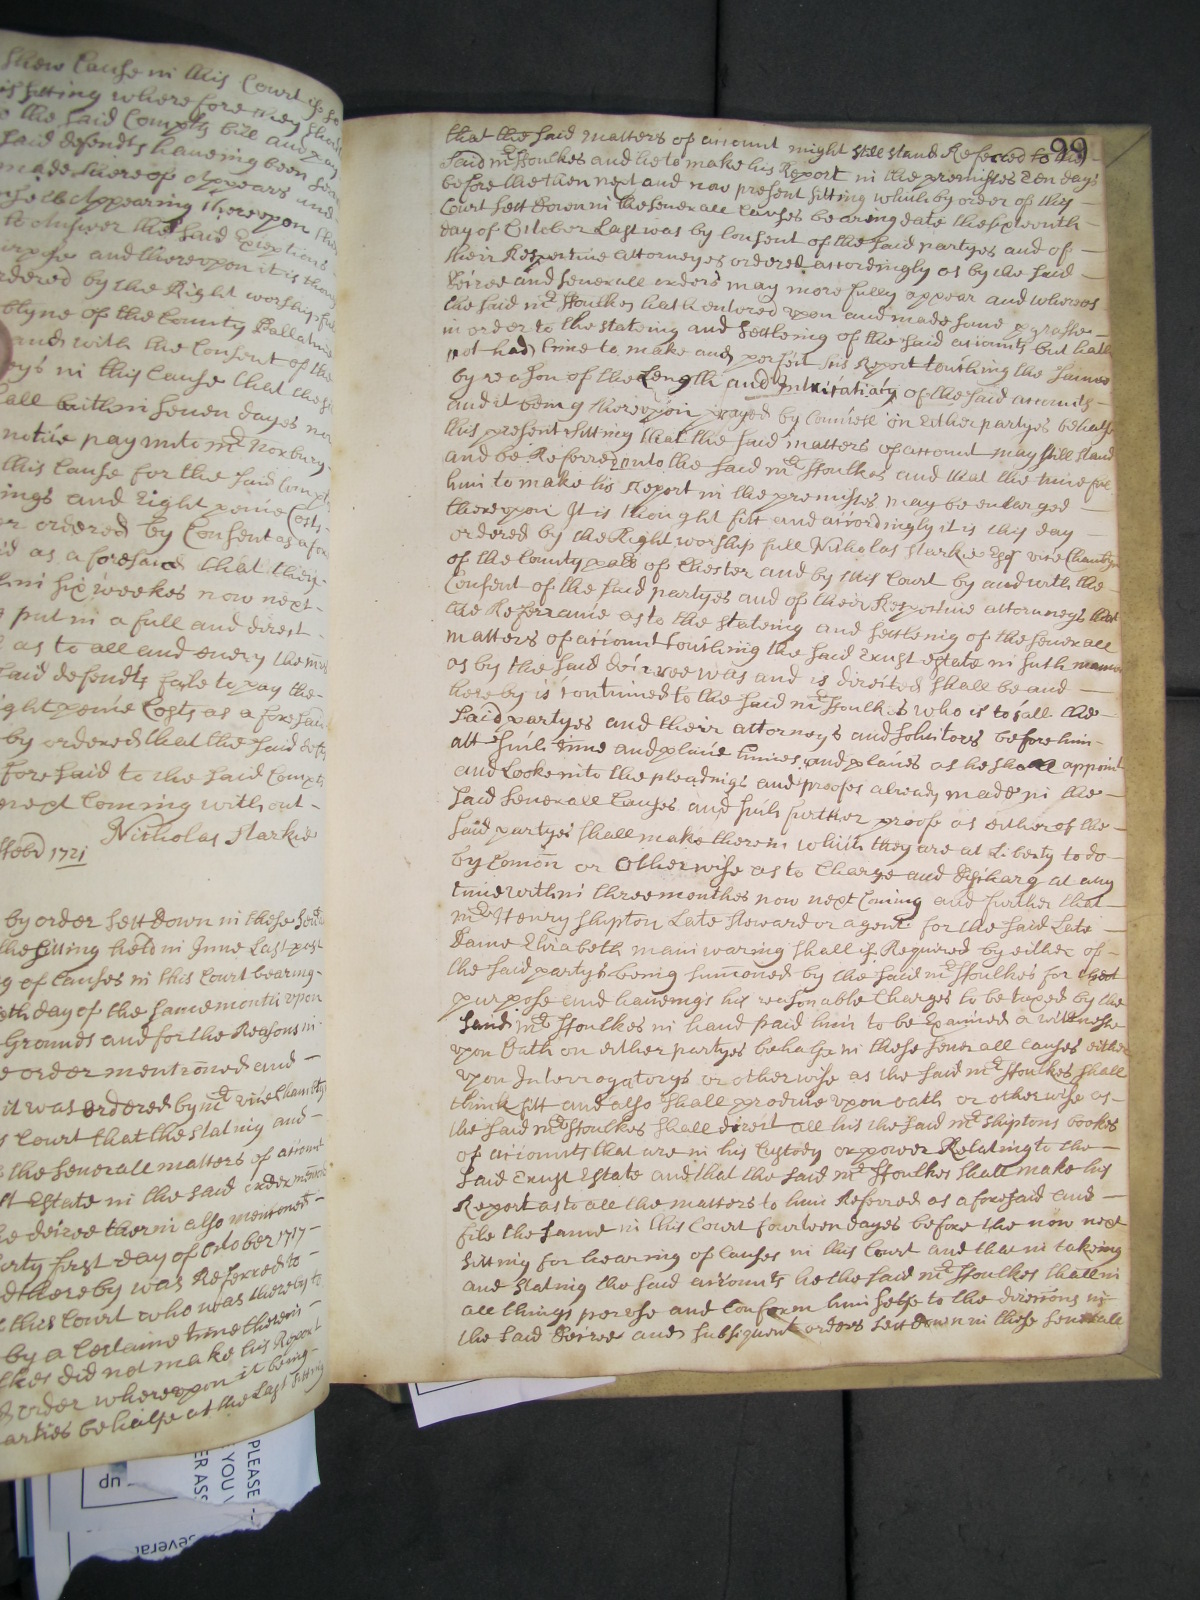 shew Cause in this Court if so
is sitting wherefore they should
the said Complts bill and pay
said defendts haveing been
made thereof appears
Appearing thereupon
to answer the said Exceptions
and thereupon it is this
ordered by the Right worshipfull
of the County Pallatine
and with the Consent of the
in this Cause that the
all within seven dayes
notice pay unto mr Norbury
this Cause for the said Complts
ings and Eight pence Costs
ordered by Consent as afore
as aforesaid that they
six weekes now next
put in a full and direct
as to all and every the
said defendts faile to pay the
Eight pence Costs as aforesaid
by ordered that the said defts
foresaid to the said Complts
next Coming without
Nicholas Starkie
1721
by order sett down in these
the sitting held in June Last past
of Causes in this Court bearing
day of the same month upon
Grounds and for the Reasons in
order mentioned and
it was ordered by mr vice Chamblyn
Court that the stateing and
the severall matters of accompt
Estate in the said order
decree therein also mentioned
first day of October 1717
thereby was Referred to
this Court who was thereby to
by a Certaine time therein
did not make his Report
order whereupon it being
parties behalfe at the Last sitting
99
that the said matters of accompt might still stand Referred to the
said mr ffoulkes and he to make his Report in the premisses Ten days
before the then next and now present sitting which by order of this
Court sett down in the severall Causes bearing date the sixteenth
day of October Last was by Consent of the said partyes and of
their Respective attorneyes ordered accordingly as by the said
Decree and severall orders may more fully appear and whereas
the said mr ffoulkes hath entered upon and made some progresse
in order to the stateing and settleing of the said accounts but hath
not had time to make and perfect his Report touching the same
by reason of the Length and Intricatiacy of the said accounts
and it being thereupon prayed by Councell on either partyes behalfe
this present sitting that the said matters of account may still stand
and be Referred unto the said mr ffoulkes and that the time for
him to make his Report in the premisses may be enlarged
thereupon It is thought fitt and accordingly it is this day
ordered by the Right worshipfull Nicholas Starkie Esqr vice Chamblyn
of the County pall of Chester and by this Court by and with the
Consent of the said partyes and of their Respective attorneys that
the Referrance as to the stateing and settleing of the severall
matters of account touching the said Trust Estate in such manner
as by the said decree was and is directed shall be and
hereby is continued to the said mr ffoulkes who is to call the
said partyes and their attorneys and solicitors before him
att such time and place times and places as he shall appoint
and Looke into the pleadings and proofes already made in the
said severall Causes and such further proofe as either of the
said partyes shall make therein which they are at Liberty to do
by Comon or Otherwise as to Charge and discharg at any
time within three monthes now next Coming and further that
mr Henry Shipton Late steward or agent for the said Late
Dame Elizabeth mainwaring shall if Required by either of
the said partys being sumoned by the said mr ffoulkes for that
purpose and haveings his reasonable Charges to be taxed by the
Said mr ffoulkes in hand paid him to be Examined a wittnesse
upon Oath on either partyes behalfe in these severall causes either
upon Interrogatorys or otherwise as the said mr ffoulkes shall
think fitt and also shall produce upon oath or otherwise as
the said mr ffoulkes shall direct all his the said mr Shiptons bookes
of accounts that are in his Custody or power Relating to the
said Trust Estate and that the said mr ffoulkes shall make his
Report as to all the matters to him Referred as aforesaid and
file the same in this Court fourteen dayes before the now next
sitting for hearing of Causes in this Court and that in takeing
and stateing the said accounts he the said mr ffoulkes shall in
all things peruse and Conform him selfe to the directions in
the said decree and subsequent orders sett down in these severall
PLEASE
YOU
ER ASS
up
several